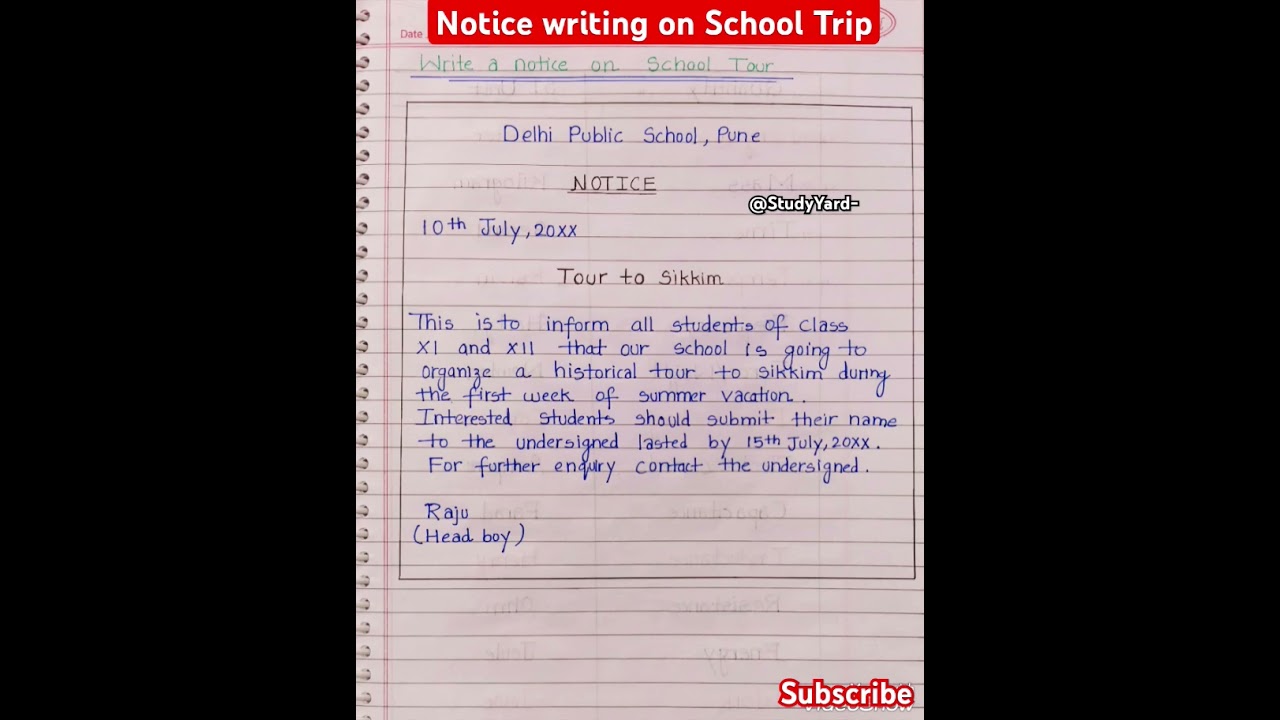 Notice writing on School Trip
Date
Write a notice on School Tour
Delhi Public School, Pune
NOTICE
@StudyYard-
10th July, 20xx
Tour to Sikkim
This is to inform all students of class
XI and XII that our school is going to
organize a historical tour to sikkim during
the first week of summer vacation.
Interested students should submit their name
to the undersigned lasted by 15th July, 20xx.
For further enquiry contact the undersigned.
Raju
(Head boy)
Subscribe